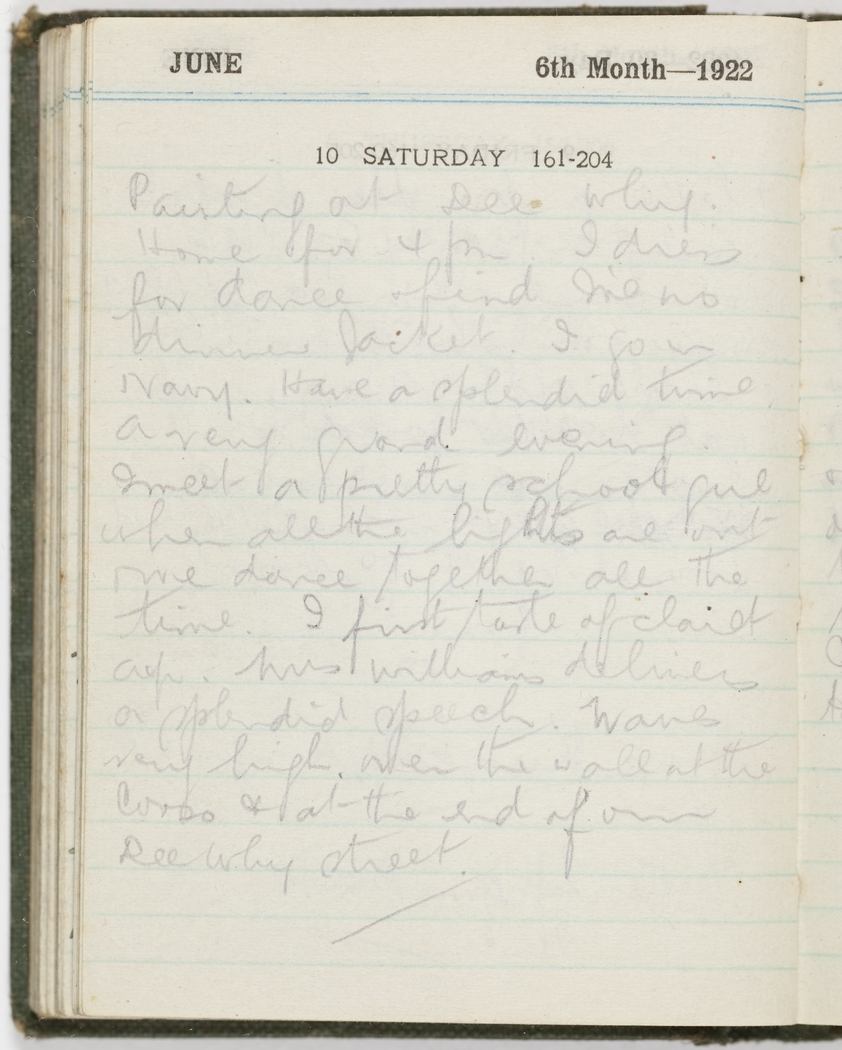 JUNE 6th Month—1922
10 SATURDAY 161-204
Painting at Dee Why.
Home for 4 pm. I dress
for dance & find I've no
dinner Jacket. I go in
Navy. Have a splendid time.
A very grand evening.
I meet a pretty school girl
when all the lights are out
& we dance together all the
time. I first taste of claret
cup. Mrs Williams delivers
a splendid speech. Waves
very high, over the wall at the
Corso & at the end of our
Dee Why street.